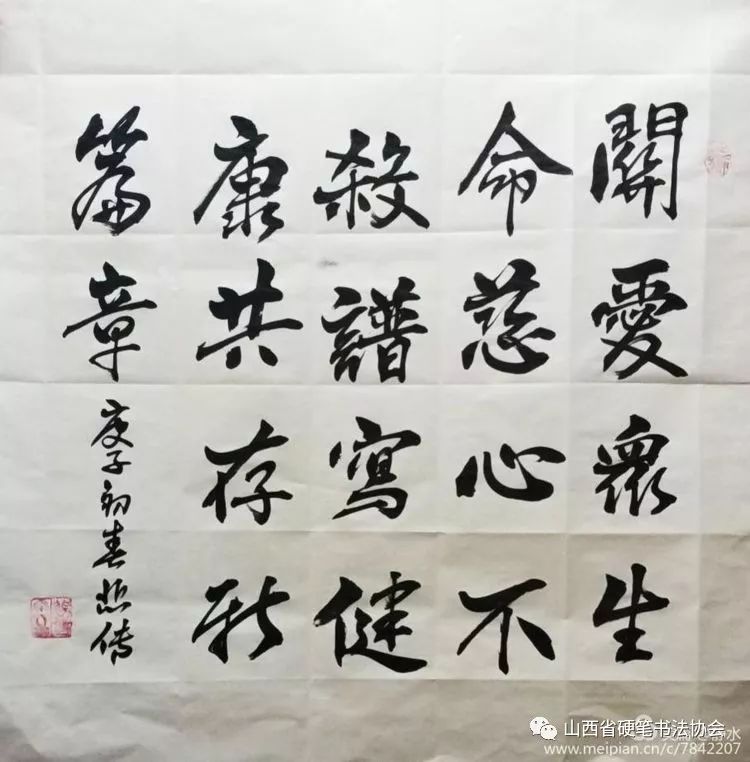 關愛衆生
命慈心不
殺譜寫健
康共存新
篇章
庚子初春
山西省硬笔书法协会
www.meipian.cn/c/7842207